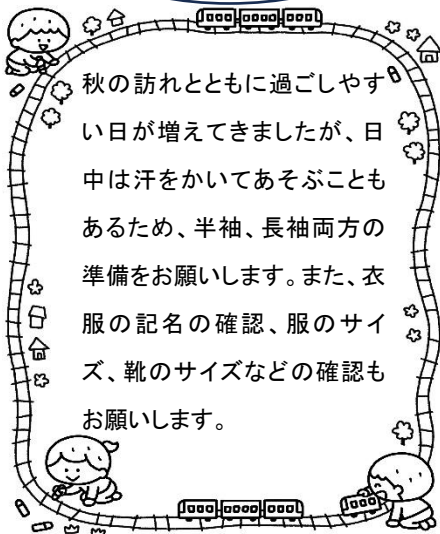 秋の訪れとともに過ごしやす
い日が増えてきましたが、日
中は汗をかいてあそぶことも
あるため、半袖、長袖両方の
準備をお願いします。また、衣
服の記名の確認、服のサイ
ズ、靴のサイズなどの確認も
お願いします。